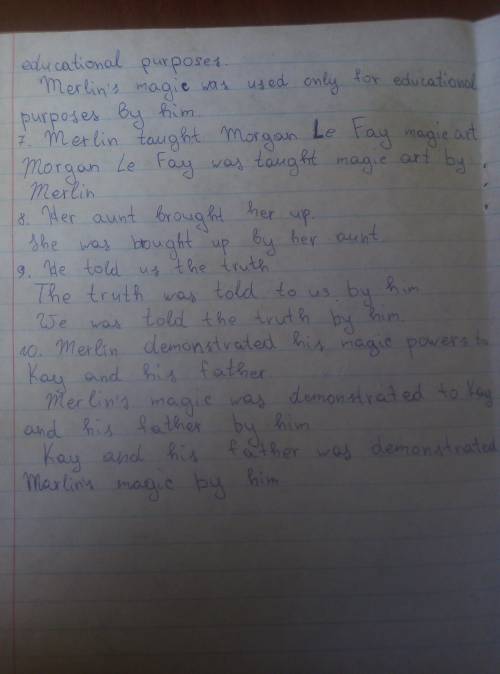 educational purposes.
Merlin's magic was used only for educational
purposes by him.
7. Merlin taught Morgan Le Fay magic art
Morgan Le Fay was taught magic art by
Merlin
8. Her aunt brought her up.
She was bought up by her aunt.
9. He told us the truth
The truth was told to us by him
We was told the truth by him.
10. Merlin demonstrated his magic powers to
Kay and his father
Merlin's magic was demonstrated to Kay
and his father by him
Kay and his father was demonstrated
Marlin's magic by him